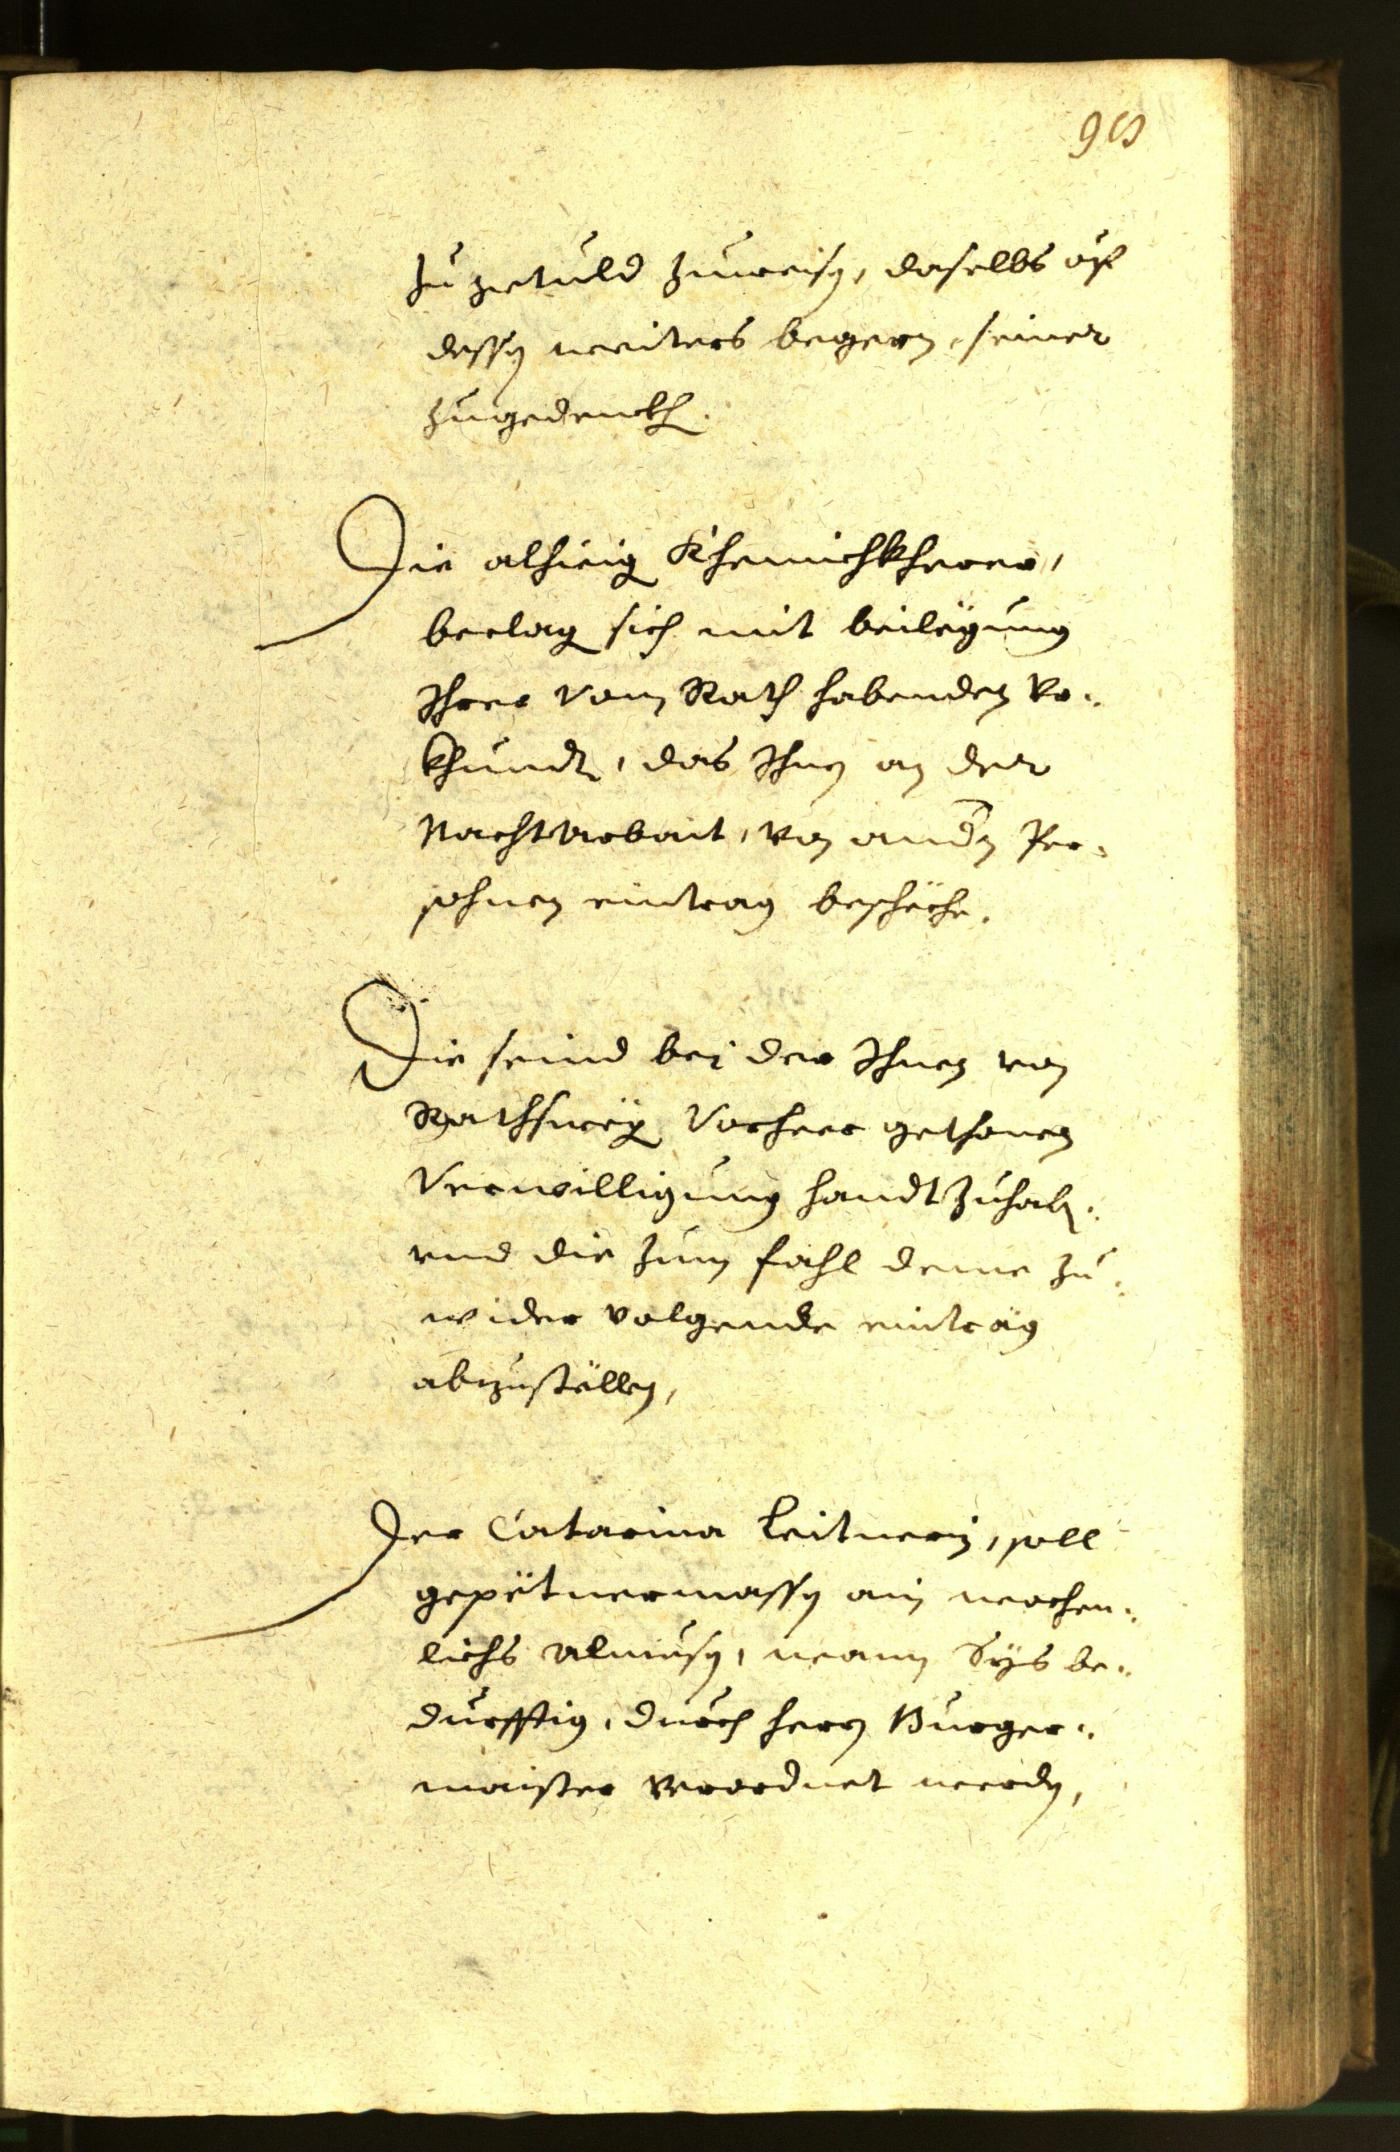 zu getuld zuweisen, daselbs auf
dessen weiters begern, seiner
zugedenckh.
Die alhieig Khemichkherer,
beclag sich mit beilegung
Ihrer vom Rath habenden Vr¬
khundt, das Ihnen an der
Nachtarbait, von andern Per¬
sohnen eintrag beschëche.
Die seind bei der Ihnen von
Rathsweg Vorheer gethonen
Verwilligung handtzuhaben
vnd die zum fahl deme zu¬
wider volgende eintrag
abzuställen,
Der Catarina Leitnerin, soll
gepëtnermassen ain wochen¬
lichs Almusen, wann Sys be¬
durfftig, durch herrn Burger¬
maister verordnet werden,